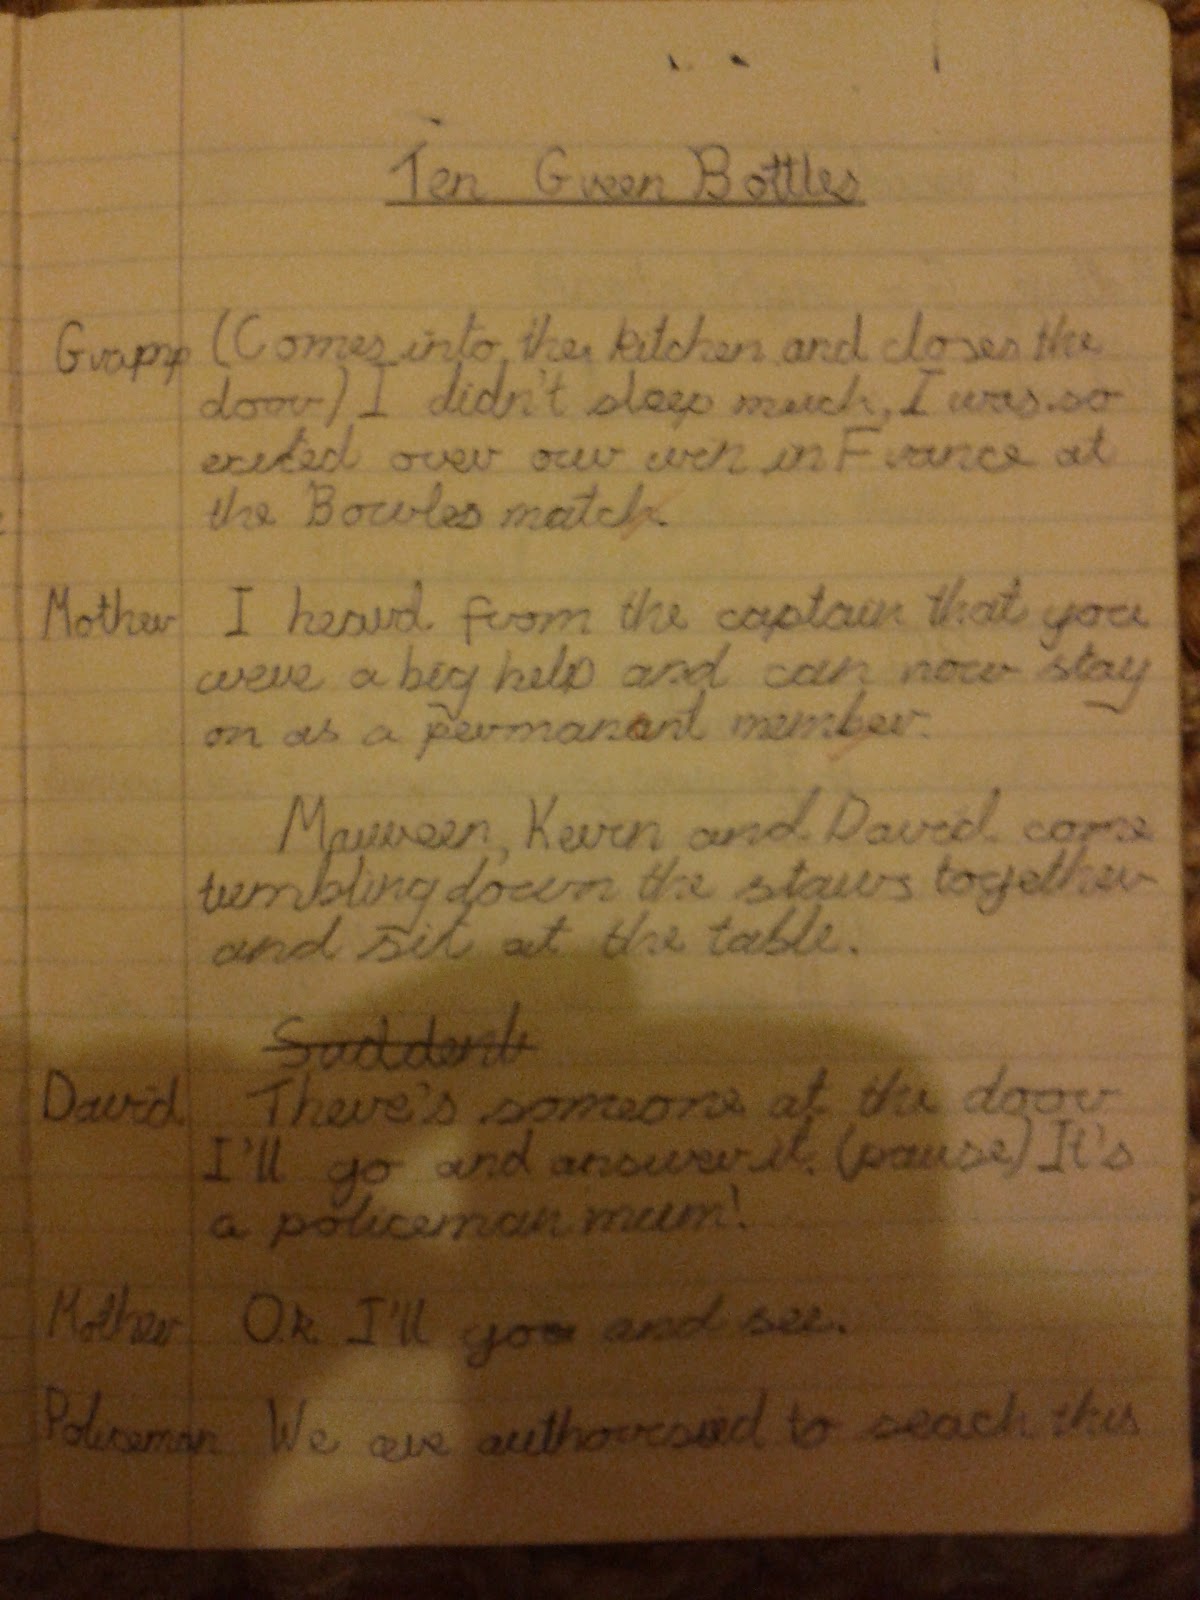 Ten Green Bottles
Gramp (Comes into the kitchen and closes the
door) I didn't sleep much, I was so
excited over our win in France at
the Bowles match.
Mother I heard from the captain that you
were a big help and can now stay
on as a permanant member.
Maureen, Kevin and David come
tumbling down the stairs together
and sit at the table.
Suddenl
David There's someone at the door
I'll go and answer it. (pause) It's
a policeman mum!
Mother O.k. I'll go and see.
Policeman We are authorised to seach this